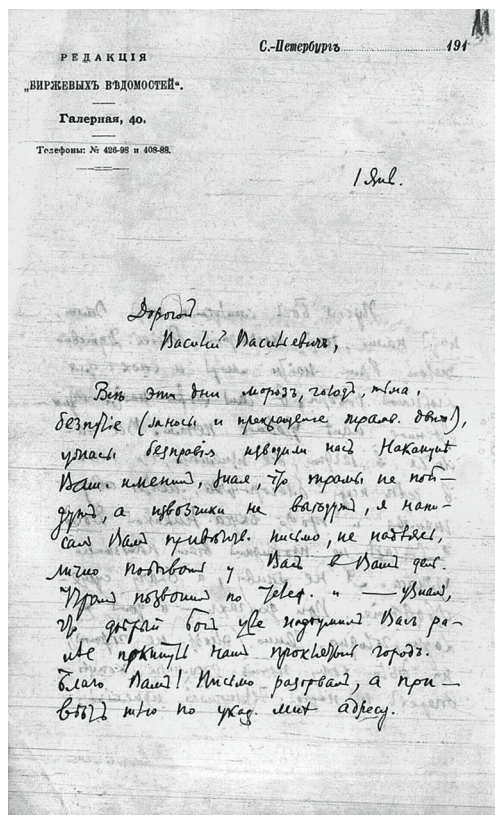 РЕДАКЦІЯ
„БИРЖЕВЫХЪ ВѢДОМОСТЕЙ“.
Галерная, 40.
Телефоны: № 426-98 и 408-88.
С.-Петербургъ 191
1 Янв.
Дорогой
Василій Васильевичъ,
Всѣ эти дни морозъ, голодъ, тьма,
безпутіе (заносы и прекращеніе трамв. движ.),
ужасы безправія изводили насъ. Наканунѣ
Ваш. именинъ, зная, что трамы не пой-
дутъ, а извозчики не вывезутъ, я напи-
салъ Вамъ привѣтств. письмо, не надѣясь
лично побывать у Васъ въ Вашъ день.
Утромъ позвонилъ по телеф. и — узналъ,
что добрый Богъ уже надоумилъ Васъ ра-
нѣе покинуть нашъ проклятый городъ.
Благо Вамъ! Письмо разорвалъ, а при-
вѣтъ шлю по указ. мнѣ адресу.